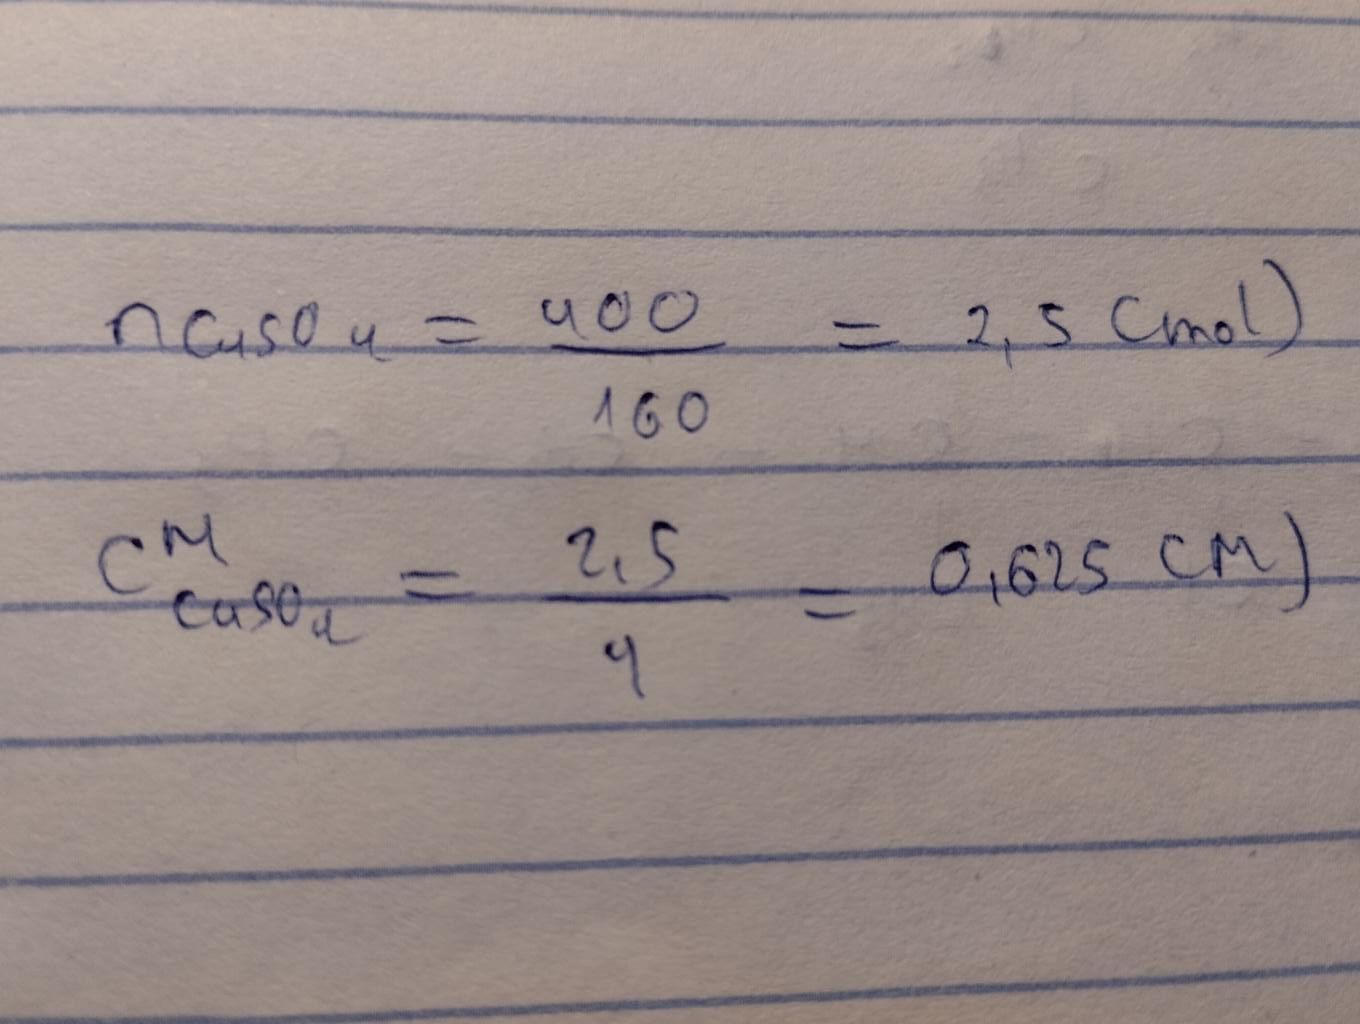 nCuSO4 = 400/160 = 2,5 (mol)
CM CuSO4 = 2,5/4 = 0,625 (M)